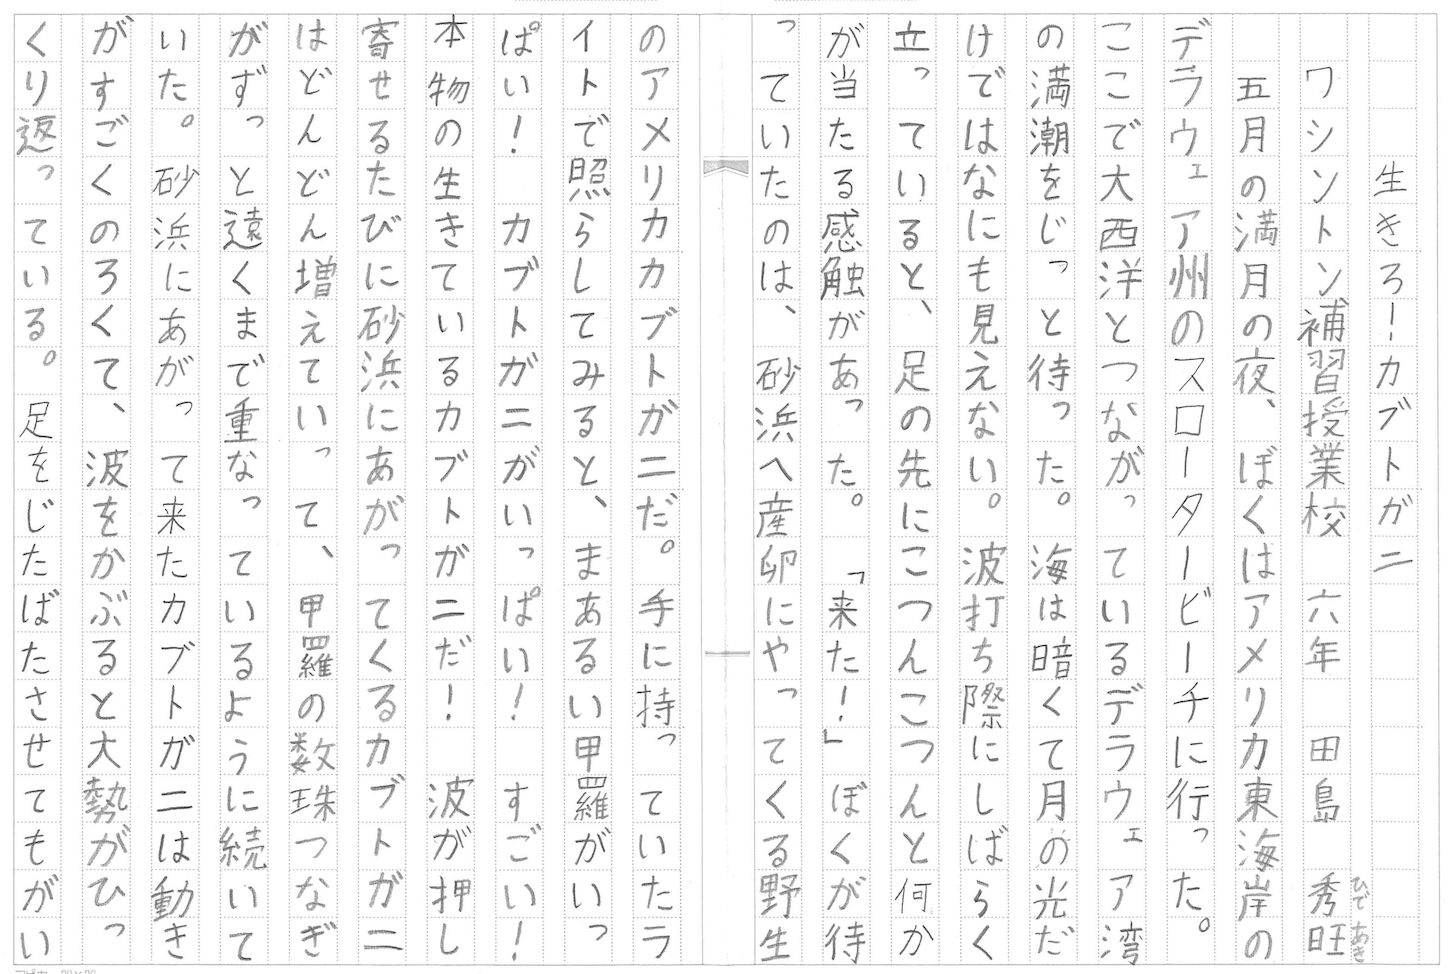 生きろ！カブトガニ
ワシントン補習授業校　六年　田島　秀旺
ひであき
五月の満月の夜、ぼくはアメリカ東海岸の
デラウェア州のスロータービーチに行った。
ここで大西洋とつながっているデラウェア湾
の満潮をじっと待った。海は暗くて月の光だ
けではなにも見えない。波打ち際にしばらく
立っていると、足の先にこつんこつんと何か
が当たる感触があった。「来た！」ぼくが待
っていたのは、砂浜へ産卵にやってくる野生
のアメリカカブトガニだ。手に持っていたラ
イトで照らしてみると、まあるい甲羅がいっ
ぱい！　カブトガニがいっぱい！　すごい！
本物の生きているカブトガニだ！　波が押し
寄せるたびに砂浜にあがってくるカブトガニ
はどんどん増えていって、甲羅の数珠つなぎ
がずっと遠くまで重なっているように続いて
いた。砂浜にあがって来たカブトガニは動き
がすごくのろくて、波をかぶると大勢がひっ
くり返っている。足をじたばたさせてもがい